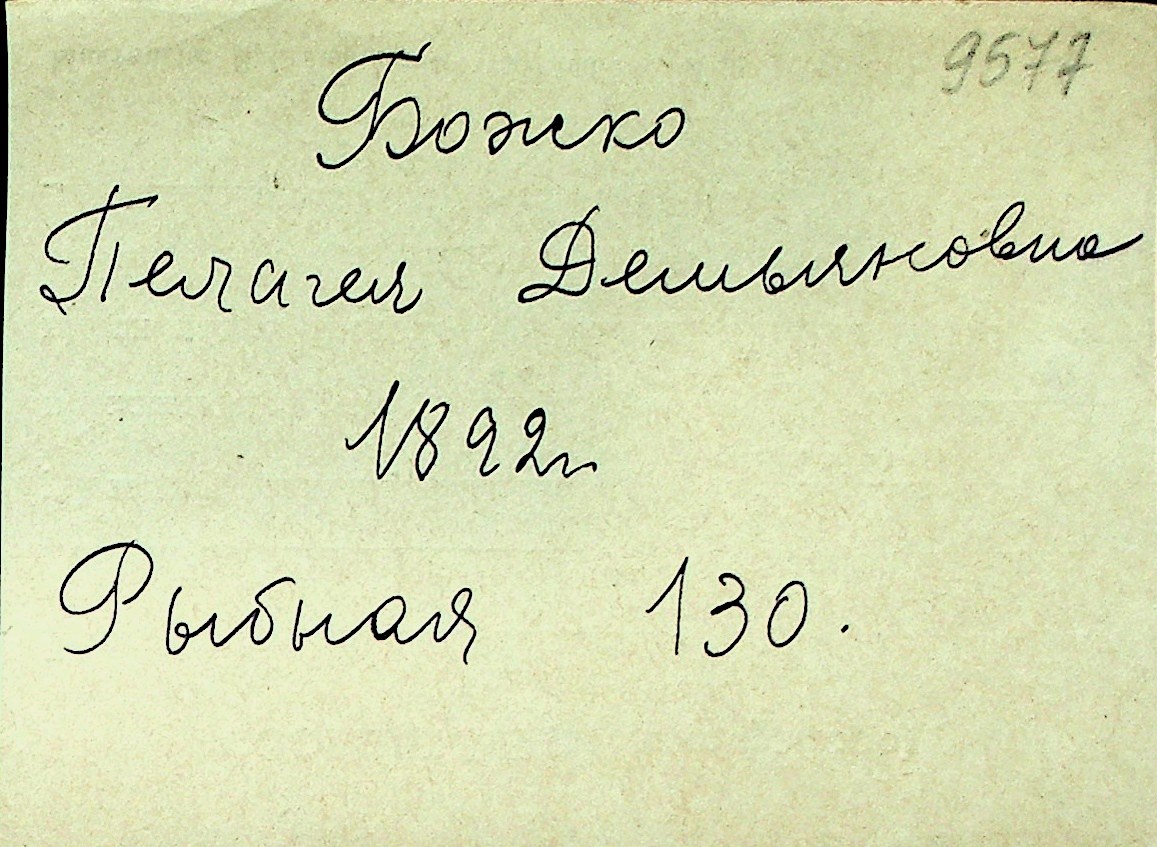 9577
Божко
Пелагея Демьяновна
1892г
Рыбная 130.